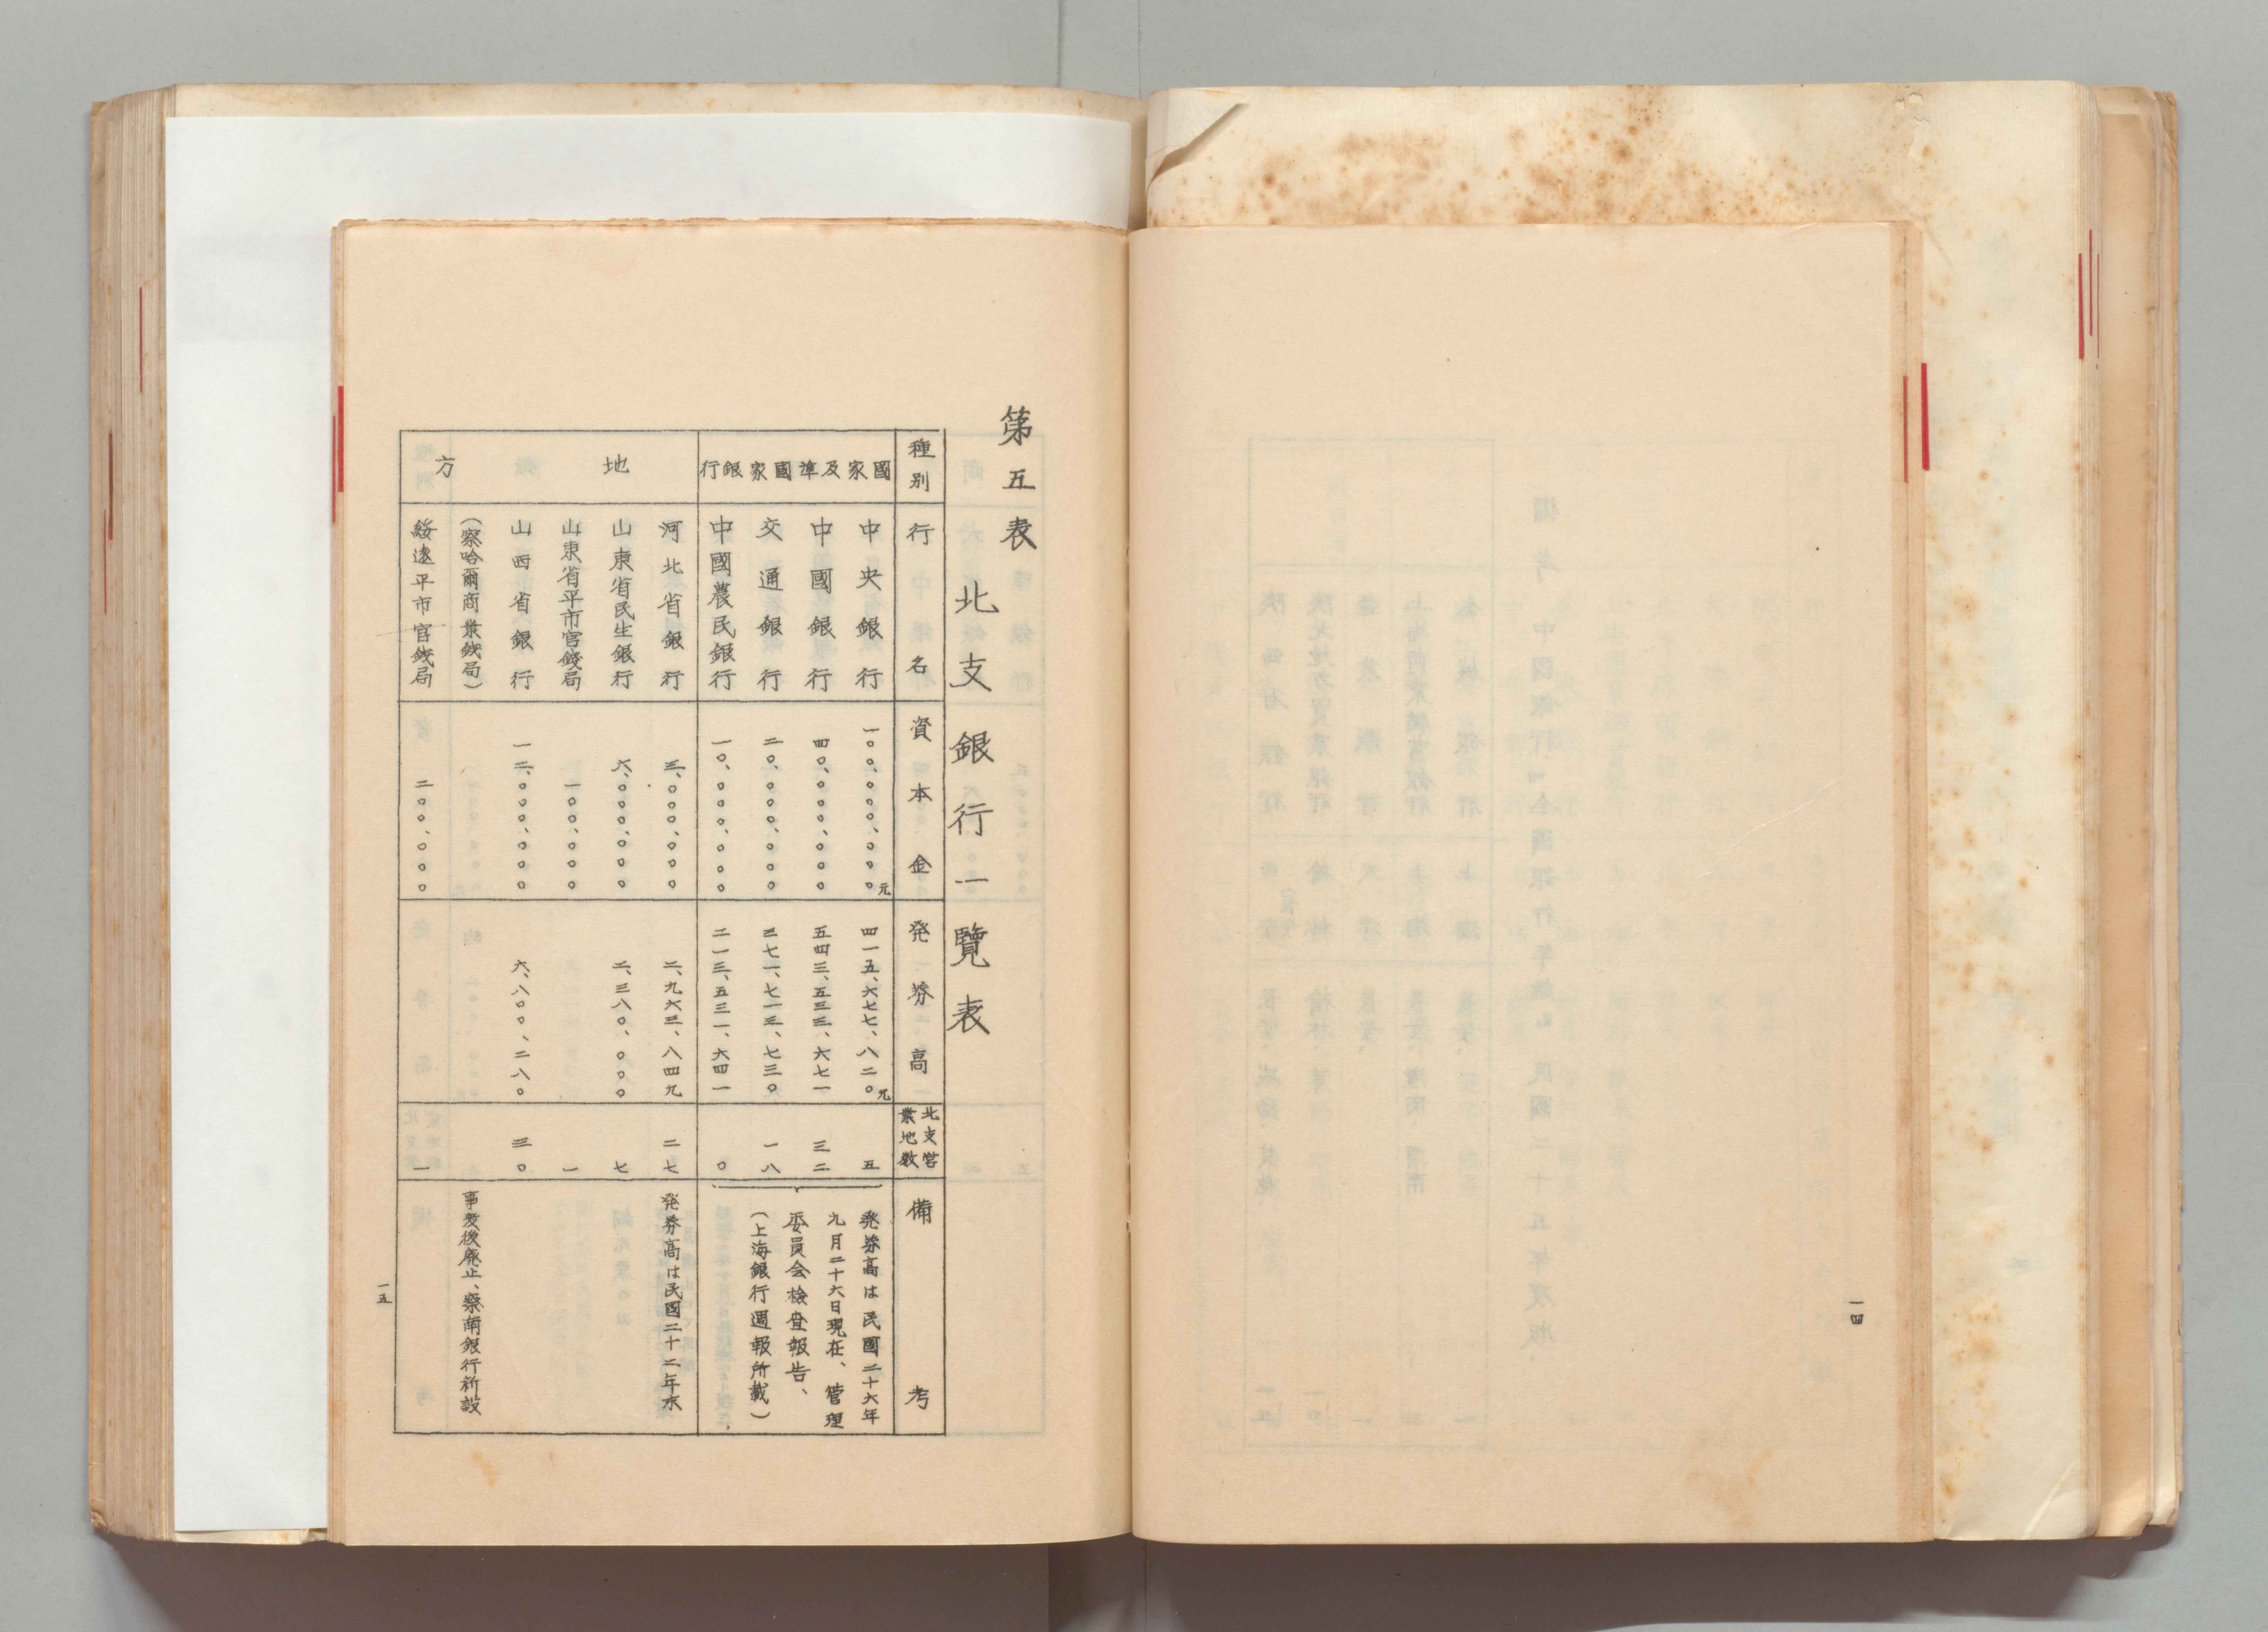 一四
第五表
北支銀行一覽表
種別
行名
資本金
発券高
北支営
業地数
備考
國家及準國家銀行
中央銀行
一〇〇、〇〇〇、〇〇〇元
四一五、六七七、八二〇元
五
中國銀行
四〇、〇〇〇、〇〇〇
五四三、五三三、六七一
三二
交通銀行
二〇、〇〇〇、〇〇〇
三七一、七一三、七三〇
一八
中國農民銀行
一〇、〇〇〇、〇〇〇
二一三、五三一、六四一
〇
発券高は民國二十六年
九月二十六日現在、管理
委員会検査報告、
(上海銀行週報所載)
地方
河北省銀行
三、〇〇〇、〇〇〇
二、九六三、八四九
二七
発券高は民國二十二年末
山東省民生銀行
六、〇〇〇、〇〇〇
二、三八〇、〇〇〇
七
山東省平市官錢局
一〇〇、〇〇〇
一
山西省銀行
一二、〇〇〇、〇〇〇
六、八〇〇、二八〇
三〇
(察哈爾商業銭局)
事変後廃止、察南銀行新設
綏遠平市官銭局
二〇〇、〇〇〇
一
一五